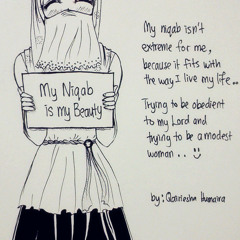 My Niqab
is my Beauty
My niqab isn't
extreme for me,
because it fits with
the way I live my life..
Trying to be obedient
to my Lord and
trying to be a modest
woman.. :)
by: Humaira